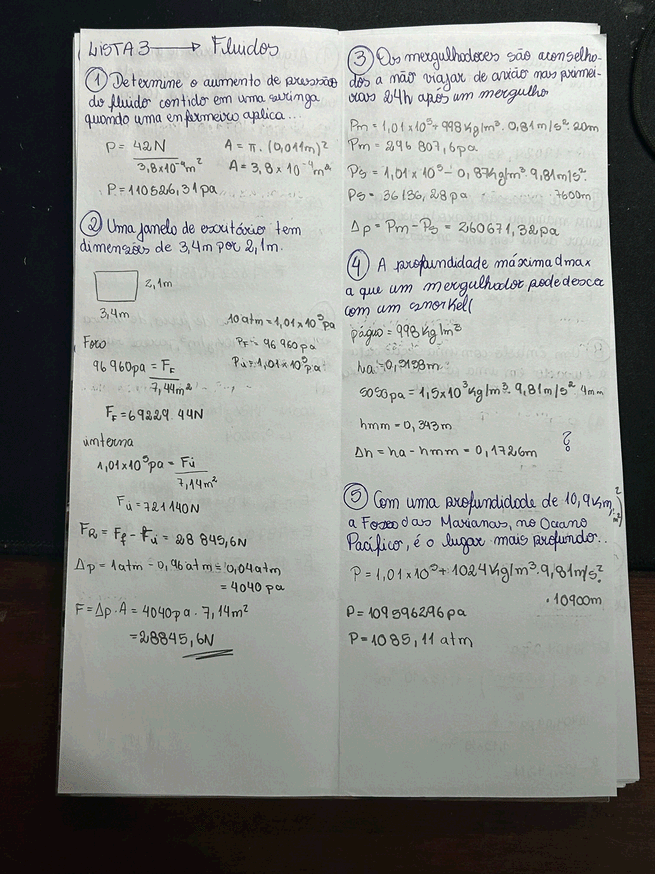 LISTA 3 → Fluidos
① Determine o aumento de pressão
do fluido contido em uma seringa
quando uma enfermeira aplica...
P = 42N A = π. (0,011m)²
3,8×10⁻⁴m² A = 3,8 × 10⁻⁴m²
P = 110526,31 pa
② Uma janela de escritório tem
dimensões de 3,4m por 2,1m.
2,1m
3,4m
10 atm = 1,01×10⁵ pa
PF = 96 960 pa
Pi = 1,01×10⁵ pa
Fora
96 960pa = FF
7,14m²
FF = 69229 44N
interna
1,01×10⁵pa = Fi
7,14m²
Fi = 721 140N
FR = Ff - Fi = 28 845,6N
Δp = 1atm - 0,96atm = 0,04atm
= 4040 pa
F = Δp · A = 4040pa . 7,14m²
= 28845,6N
③ Os mergulhadores são aconselha-
dos a não viajar de avião nas primei-
ras 24h após um mergulho
Pm = 1,01×10⁵ + 998 Kg/m³. 9,81m/s². 20m
Pm = 296 807,6 pa
Ps = 1,01×10⁵ - 0,87Kg/m³ 9,81m/s².
Ps = 36136,28 pa 7600m
Δp = Pm - Ps = 260671,32pa
④ A profundidade máxima dmax
a que um mergulhador pode descer
com um snorkel
págua = 998 Kg/m³
5050pa = 1,5×10³Kg/m³. 9,81m/s² 4mm
hmm = 0,343m
Δh = ha - hmm = 0,1726m ?
⑤ Com uma profundidade de 10,9Km,
a Fossa das Marianas, no Oceano
Pacífico, é o lugar mais profundo...
P = 1,01×10⁵ + 1024 Kg/m³. 9,81m/s².
· 10900m
P = 109596296 pa
P = 1085,11 atm